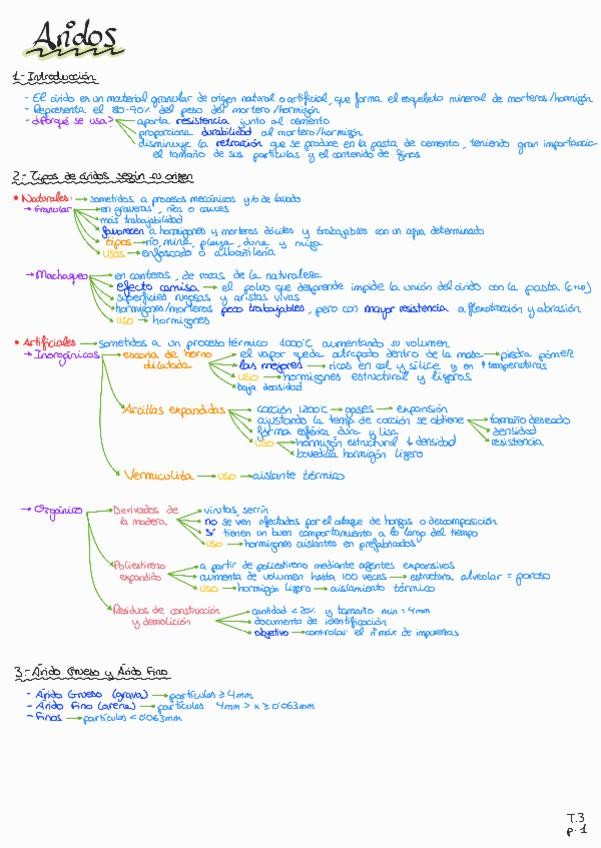 Áridos
1.- Introducción
- El árido es un material granular de origen natural o artificial, que forma el esqueleto mineral de morteros/hormigón
- Representa el 80-90% del peso del mortero/hormigón
- ¿Porqué se usa? → aporta resistencia junto al cemento
→ proporciona durabilidad al mortero/hormigón
→ disminuye la retracción que se produce en la pasta de cemento, teniendo gran importancia
el tamaño de sus partículas y el contenido de finos
2.- Tipos de áridos según su origen
• Naturales: → sometidos a procesos mecánicos y/o de lavado
→ Granular → en graveras, ríos o cauces
→ más trabajabilidad
→ favorecen a hormigones y morteros dóciles y trabajables con un agua determinado
→ tipos → río, mina, playa, duna y miga
→ usos → enfoscado o albañilería
→ Machaqueo → en canteras, de rocas de la naturaleza
→ efecto camisa → el polvo que desprende impide la unión del árido con la pasta (c+w)
→ superficies rugosas y aristas vivas
→ hormigones/morteros poco trabajables, pero con mayor resistencia a flexotracción y abrasión
→ uso → hormigones
• Artificiales → sometidos a un proceso térmico 1000°C aumentando su volumen
→ Inorgánicos → escoria de horno → el vapor queda atrapado dentro de la masa → piedra pómez
dilatada → las mejores → ricas en cal y sílice y en ↑ temperaturas
→ uso → hormigones estructural y ligeros
→ baja densidad
→ Arcillas expandidas → cocción 1200°C → gases → expansión
→ ajustando la temp de cocción se obtiene → tamaño deseado
→ forma esférica dura y lisa → densidad
→ uso → hormigón estructural ↓ densidad → resistencia
→ bovedilla hormigón ligero
→ Vermiculita → uso → aislante térmico
→ Orgánico → Derivados de → virutas, serrín
la madera → no se ven afectados por el ataque de hongos o descomposición
→ sí tienen un buen comportamiento a lo largo del tiempo
→ uso → hormigones aislantes en prefabricados
→ Poliestireno → a partir de poliestireno mediante agentes expansivos
expandido → aumenta de volumen hasta 100 veces → estructura alveolar = poroso
→ uso → hormigón ligero → aislamiento térmico
→ Residuos de construcción → cantidad < 20% y tamaño min = 4mm
y demolición → documento de identificación
→ objetivo → controlar el nº máx de impurezas
3.- Árido Grueso y Árido Fino
- Árido Grueso (grava) → partículas ≥ 4mm
- Árido Fino (arena) → partículas 4mm > x ≥ 0'063mm
- Finos → partículas < 0'063mm
T.3
p.1